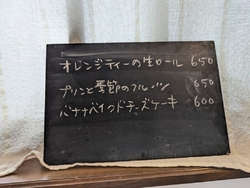 オレンジティーの生ロール 650
プリンと季節のフルーツ 650
バナナベイクドチーズケーキ 600